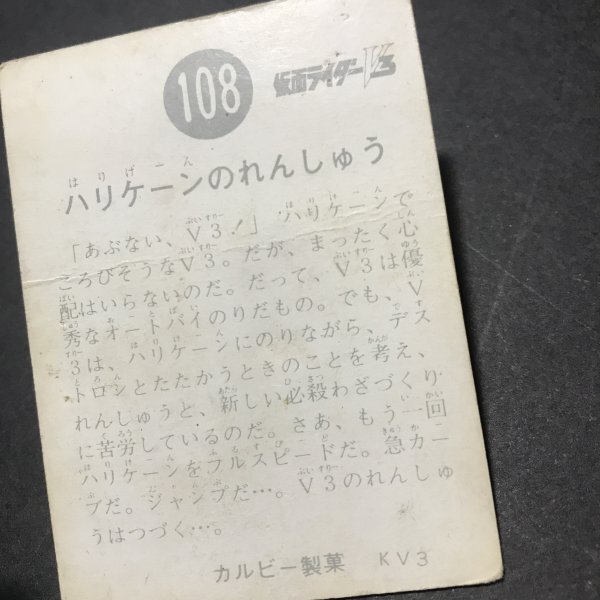 108
仮面ライダーV3
はりけーん
ハリケーンのれんしゅう
「あぶない、V3！」ハリケーンで
ころびそうなV3。だが、まったく心
配はいらないのだ。だって、V3は優
秀なオートバイのりだもの。でも、V
3は、ハリケーンにのりながら、デス
トロンとたたかうときのことを考え、
れんしゅうと、新しい必殺わざづくり
に苦労しているのだ。さあ、もう一回
ハリケーンをフルスピードだ。急カー
ブだ。ジャンプだ…。V3のれんしゅ
うはつづく…。
カルビー製菓 KV3